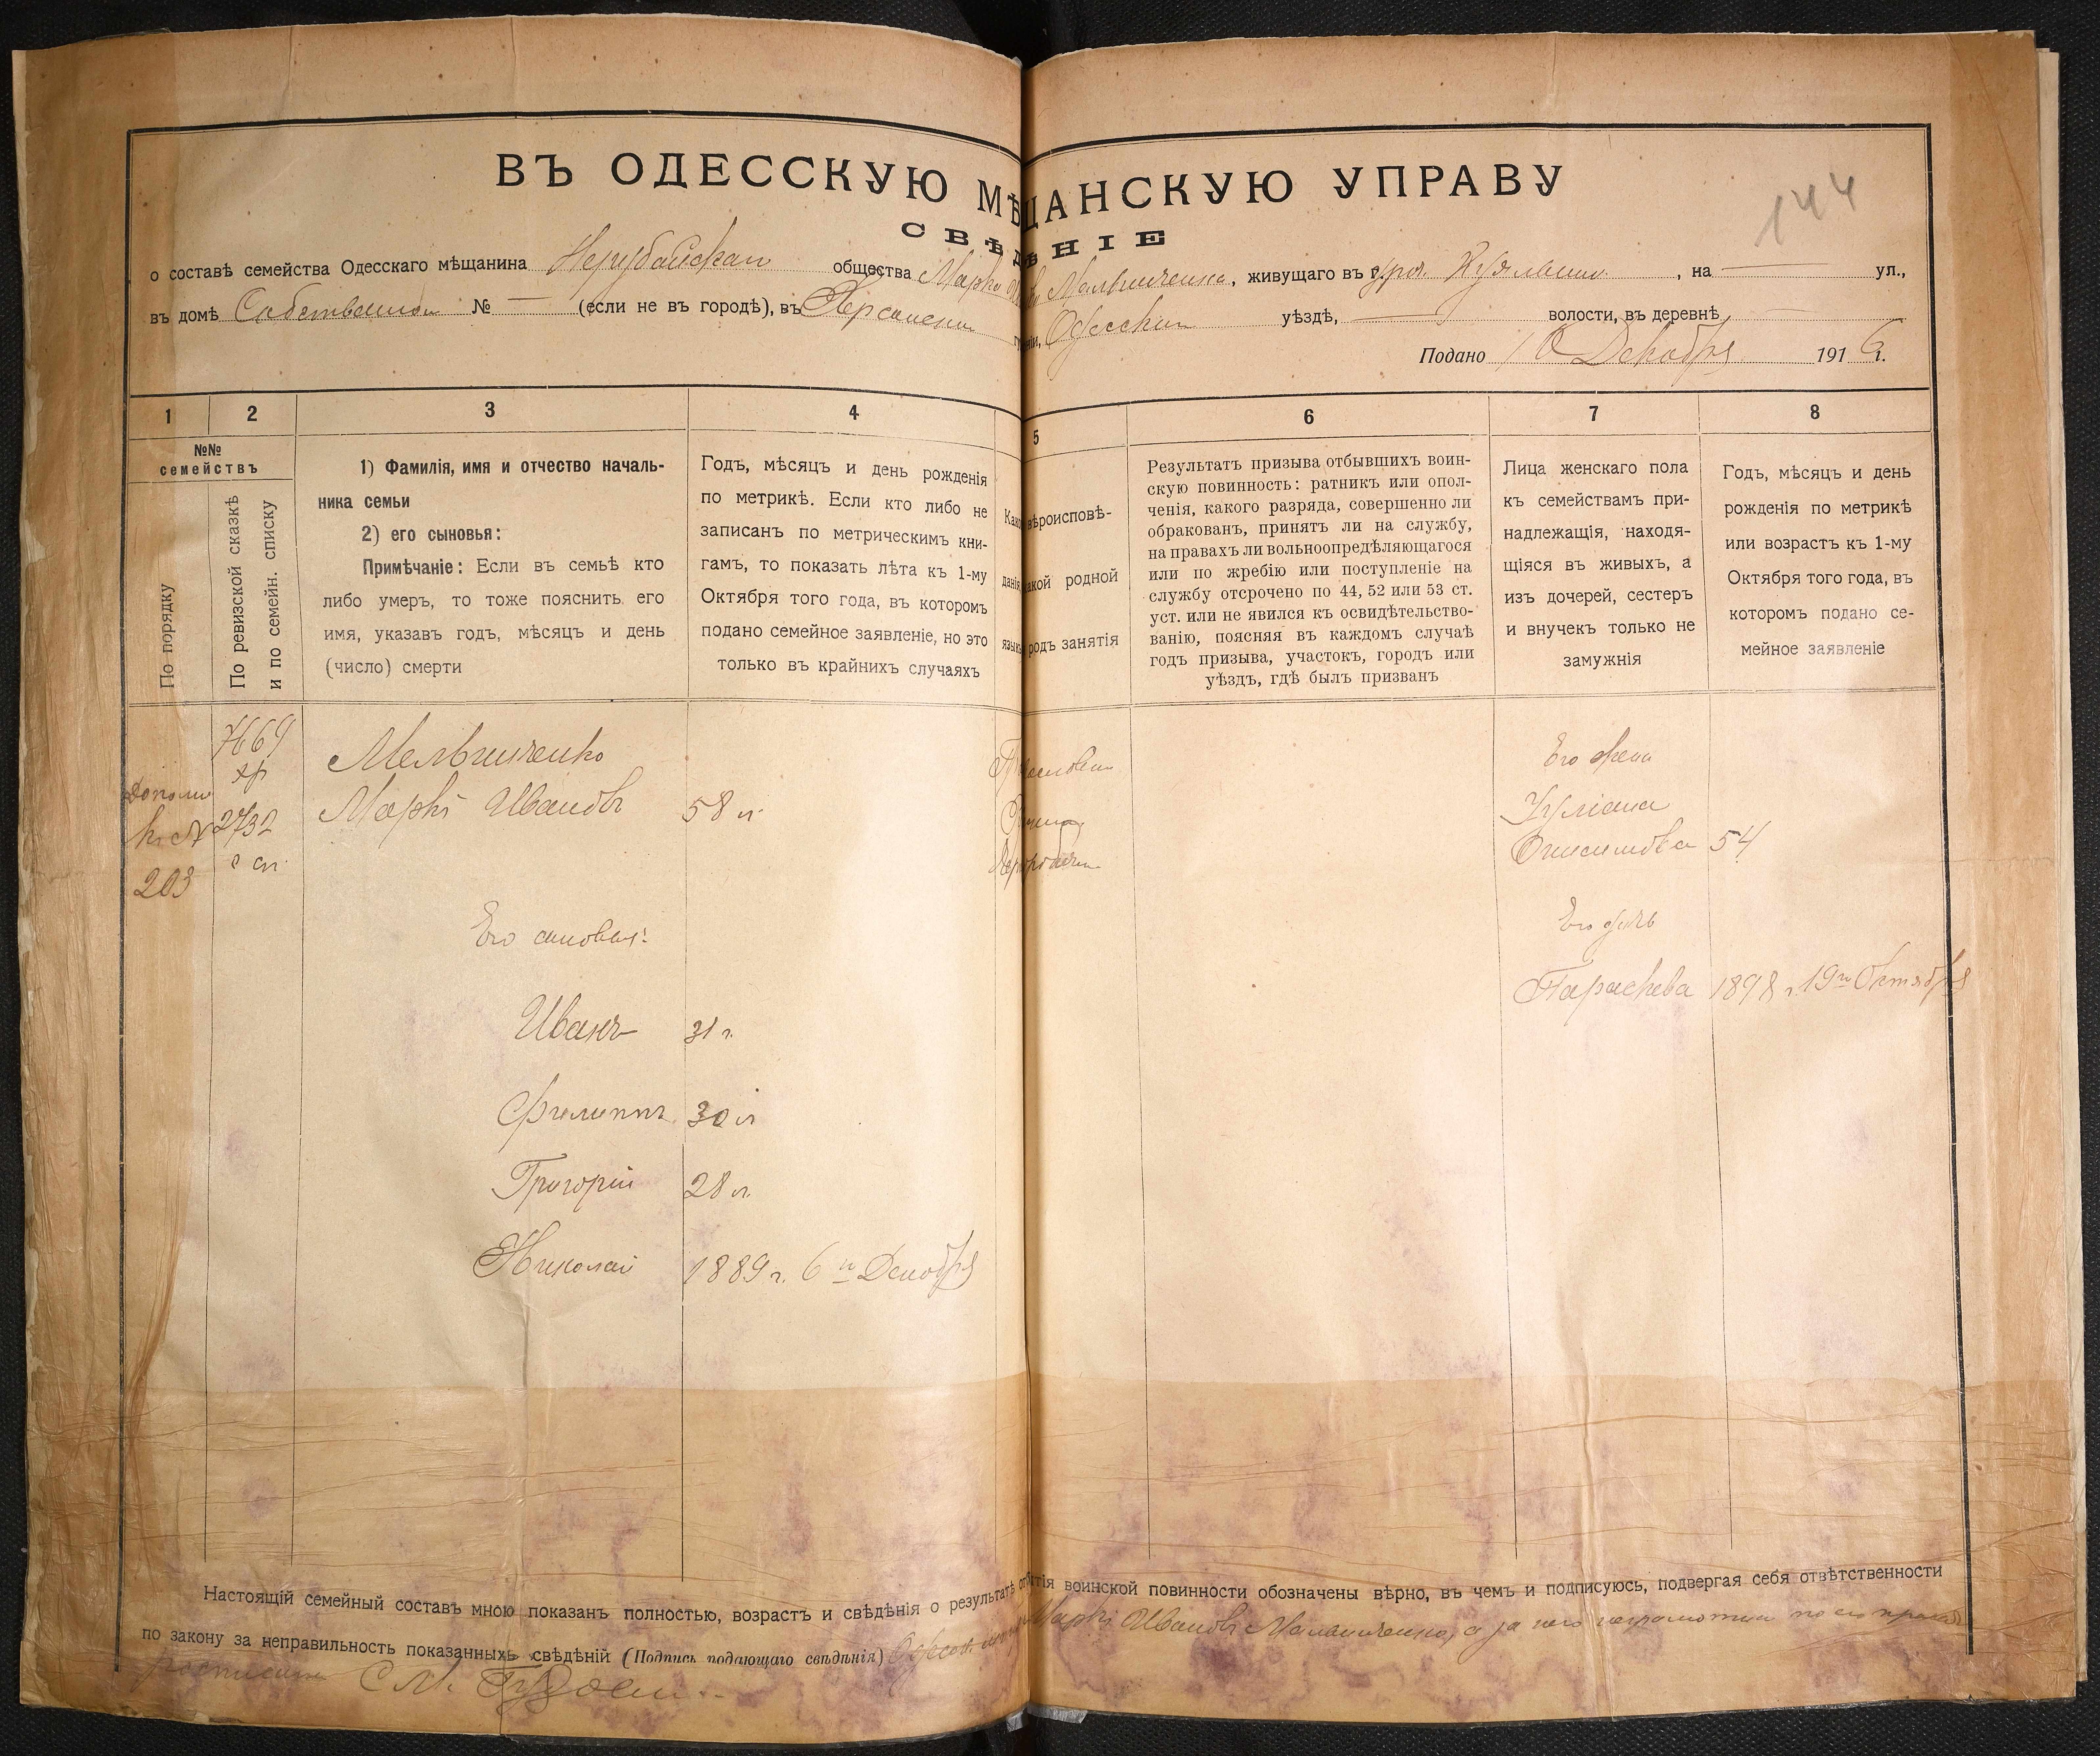 144
ВЪ ОДЕССКУЮ МѢЩАНСКУЮ УПРАВУ
СВѢДѢНІЕ
о составѣ семейства Одесскаго мѣщанина Нерубайскаго общества Марко Мельниченко, живущаго въ Куяльник , на — ул.,
въ домѣ Собственном № — (если не въ городѣ), въ Херсонской губерніи, Одесском уѣздѣ, — волости, въ деревнѣ —
Подано 10 Декабря 1916 г.
1 2 3 4 5 6 7 8
№№
семействъ
По порядку
По ревизской сказкѣ
и по семейн. списку
1) Фамилія, имя и отчество началь-
ника семьи
2) его сыновья:
Примѣчаніе: Если въ семьѣ кто
либо умеръ, то тоже пояснить его
имя, указавъ годъ, мѣсяцъ и день
(число) смерти
Годъ, мѣсяцъ и день рожденія
по метрикѣ. Если кто либо не
записанъ по метрическимъ кни-
гамъ, то показать лѣта къ 1-му
Октября того года, въ которомъ
подано семейное заявленіе, но это
только въ крайнихъ случаяхъ
вѣроисповѣ-
данія какой родной
родъ занятія
Результатъ призыва отбывшихъ воин-
скую повинность: ратникъ или опол-
ченія, какого разряда, совершенно ли
обракованъ, принятъ ли на службу,
на правахъ ли вольноопредѣляющагося
или по жребію или поступленіе на
службу отсрочено по 44, 52 или 53 ст.
уст. или не явился къ освидѣтельство-
ванію, поясняя въ каждомъ случаѣ
годъ призыва, участокъ, городъ или
уѣздъ, гдѣ былъ призванъ
Лица женскаго пола
къ семействамъ при-
надлежащія, находя-
щіяся въ живыхъ, а
изъ дочерей, сестеръ
и внучекъ только не
замужнія
Годъ, мѣсяцъ и день
рожденія по метрикѣ
или возрастъ къ 1-му
Октября того года, въ
которомъ подано се-
мейное заявленіе
Дополн
к №
203
7669
2732
Мельниченко
Маркъ Ивановъ 58 л.
Его сыновья:
Иванъ 31 г.
Филиппъ 30 л
Григорій 28 л.
Николай 1889 г. 6го Декабря
Его жена
Уліана
Онисимова 54
Его дочь
Параскева 1898 г. 19го Октября
Настоящій семейный составъ мною показанъ полностью, возрастъ и свѣдѣнія о результатѣ отбытія воинской повинности обозначены вѣрно, въ чемъ и подписуюсь, подвергая себя отвѣтственности
по закону за неправильность показанныхъ свѣдѣній (Подпись подающаго свѣдѣнія) Одесск. Маркъ Ивановъ Мельниченко, а за него неграмотн по его прозьб
росписался С М.